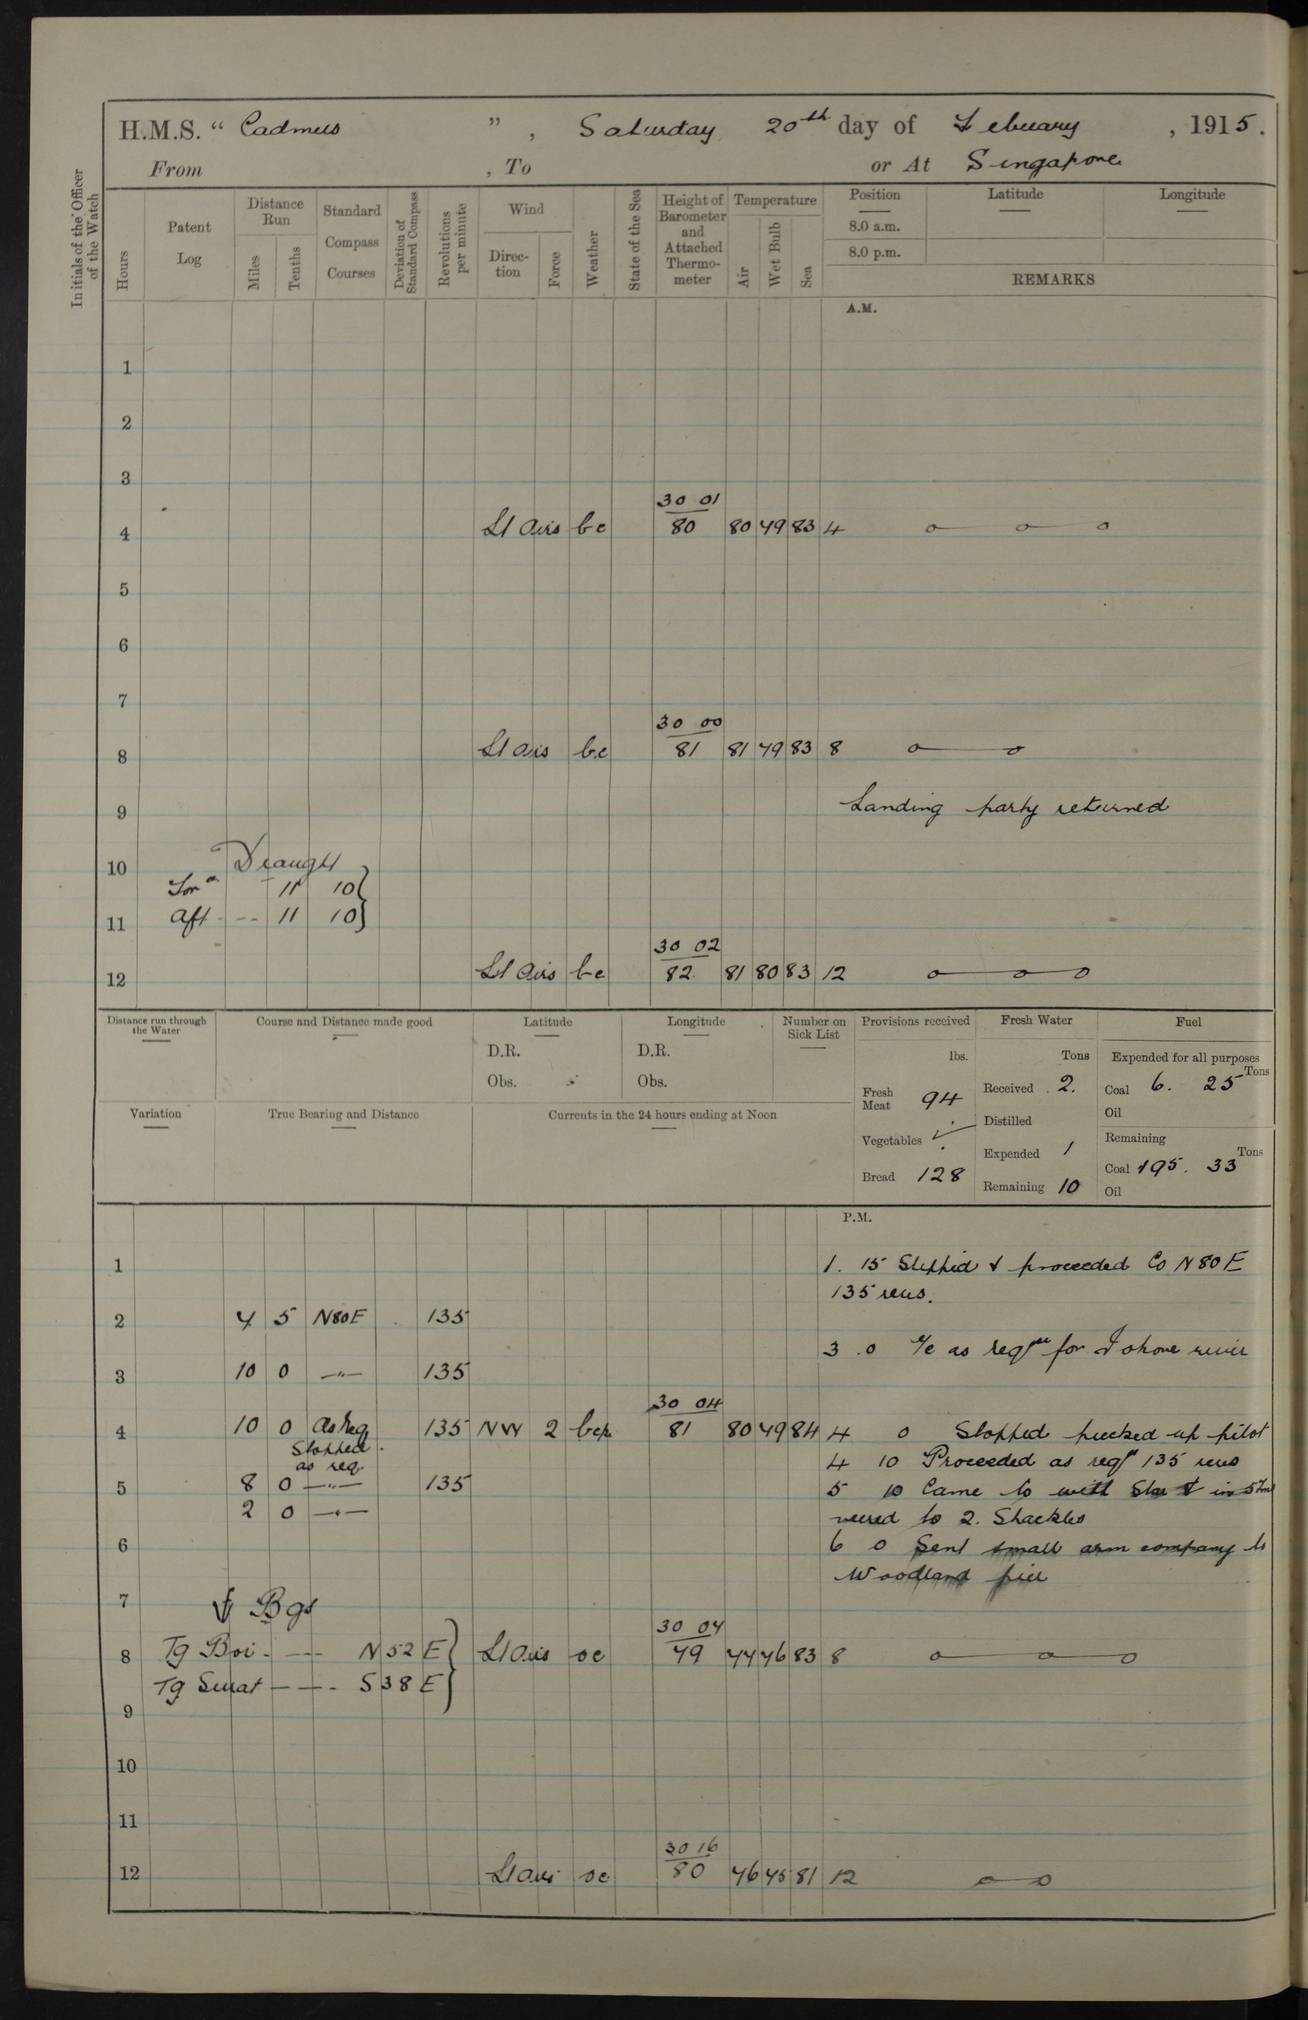 H.M.S. “ Cadmus ” , Saturday 20th day of Febuary , 1915.
From , To or At Singapore
Initials of the Officer of the Watch
Hours
Patent Log
Distance Run
Miles
Tenths
Standard Compass Courses
Deviation of Standard Compass
Revolutions per minute
Wind
Direction
Force
Weather
State of the Sea
Height of Barometer and Attached Thermometer
Temperature
Air
Wet Bulb
Sea
Position Latitude Longitude
8.0 a.m.
8.0 p.m.
REMARKS
A.M.
1
2
3
30 01
4 Lt Airs bc 80 80 79 83 4
5
6
7
30 00
8 Lt Airs bc 81 81 79 83 8
9 Landing party returned
10 Draught
For'd 11 10
11 Aft 11 10
30 02
12 Lt Airs bc 82 81 80 83 12
Distance run through the Water
Course and Distance made good
Latitude
D.R.
Obs.
Longitude
D.R.
Obs.
Number on Sick List
Variation
True Bearing and Distance
Currents in the 24 hours ending at Noon
Provisions received
lbs.
Fresh Meat 94
Vegetables ✓
Bread 128
Fresh Water
Tons
Received 2.
Distilled
Expended 1
Remaining 10
Fuel
Expended for all purposes
Tons
Coal 6. 25
Oil
Remaining
Tons
Coal 195. 33
Oil
P.M.
1 1. 15 Slipped & proceeded Co N80E
135 revs.
2 7 5 N80E 135
3 .0 c/c as reqre for Johore river
3 10 0 —"— 135
30 04
4 10 0 As req 135 NW 2 bcp 81 80 79 84 4 0 Stopped picked up pilot
Stopped
as req.
4 10 Proceeded as reqd 135 revs
5 8 0 —"— 135 5 10 Came to with Sta in 5 fms
2 0 —"— veered to 2. Shackles
6 6 0 Sent small arm company to
Woodland pier
7 Bgs
30 04
8 Tg Boi N52E Lt Airs oc 79 77 76 83 8
Tg Surat S38E
9
10
11
30 16
12 Lt Airs oc 80 76 75 81 12